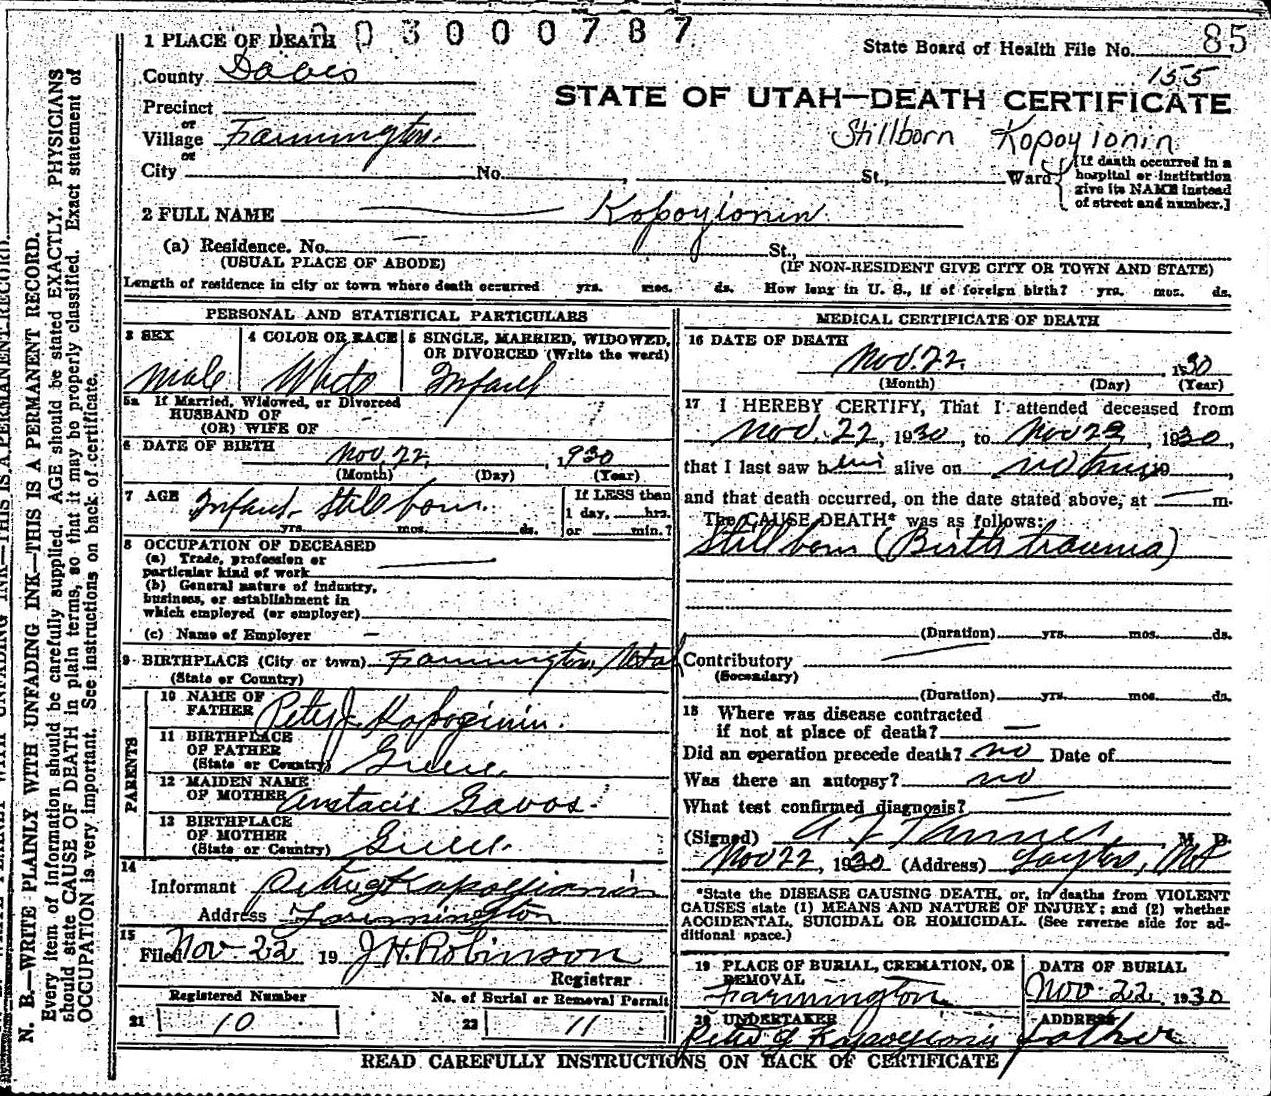 1003000787
State Board of Health File No. 85
155
1 PLACE OF DEATH
County Davis
STATE OF UTAH—DEATH CERTIFICATE
Precinct
or
Village Farmington.
or
City No. , St., Ward
Stillborn Kopoyionin
[If death occurred in a hospital or institution give its NAME instead of street and number.]
2 FULL NAME Kopoyionin
(a) Residence. No. — St.,
(USUAL PLACE OF ABODE) (IF NON-RESIDENT GIVE CITY OR TOWN AND STATE)
Length of residence in city or town where death occurred yrs. mos. ds. How long in U. S., if of foreign birth? yrs. mos. ds.
PERSONAL AND STATISTICAL PARTICULARS
3 SEX Male
4 COLOR OR RACE White
5 SINGLE, MARRIED, WIDOWED,
OR DIVORCED (Write the word)
Infant
5a If Married, Widowed, or Divorced
HUSBAND OF
(OR) WIFE OF
6 DATE OF BIRTH Nov. 22, 1930
(Month) (Day) (Year)
7 AGE Infant Stillborn.
yrs. mos. ds.
If LESS than
1 day, hrs.
or min.?
8 OCCUPATION OF DECEASED
(a) Trade, profession or
particular kind of work —
(b) General nature of industry,
business, or establishment in
which employed (or employer)
(c) Name of Employer —
9 BIRTHPLACE (City or town) Farmington, Utah
(State or Country)
PARENTS
10 NAME OF
FATHER Pete J. Kopoginin.
11 BIRTHPLACE
OF FATHER
(State or Country) Greece.
12 MAIDEN NAME
OF MOTHER Anstacis Gavos.
13 BIRTHPLACE
OF MOTHER
(State or Country) Greece.
14
Informant
Address Farmington
15
Filed Nov-22 19 J H Robinson
Registrar
Registered Number
21 10
No. of Burial or Removal Permit
22 11
MEDICAL CERTIFICATE OF DEATH
16 DATE OF DEATH
Nov. 22. 1930
(Month) (Day) (Year)
17 I HEREBY CERTIFY, That I attended deceased from
Nov. 22, 1930, to Nov 22, 1930,
that I last saw him alive on no time 19
and that death occurred, on the date stated above, at — m.
The CAUSE DEATH* was as follows:
Stillborn (Birth trauma)
(Duration) yrs. mos. ds.
Contributory —
(Secondary)
(Duration) yrs. mos. ds.
18 Where was disease contracted
if not at place of death? —
Did an operation precede death? no Date of
Was there an autopsy? no
What test confirmed diagnosis? —
(Signed) A Z Tanner M. D.
Nov 22, 1930 (Address) Layton, Ut
*State the DISEASE CAUSING DEATH, or, in deaths from VIOLENT
CAUSES state (1) MEANS AND NATURE OF INJURY; and (2) whether
ACCIDENTAL, SUICIDAL OR HOMICIDAL. (See reverse side for ad-
ditional space.)
19 PLACE OF BURIAL, CREMATION, OR
REMOVAL
Farmington
DATE OF BURIAL
Nov. 22 1930
20 UNDERTAKER
ADDRESS
father
READ CAREFULLY INSTRUCTIONS ON BACK OF CERTIFICATE
N. B.—WRITE PLAINLY WITH UNFADING INK—THIS IS A PERMANENT RECORD.
Every item of information should be carefully supplied. AGE should be stated EXACTLY. PHYSICIANS
should state CAUSE OF DEATH in plain terms, so that it may be properly classified. Exact statement of
OCCUPATION is very important. See instructions on back of certificate.